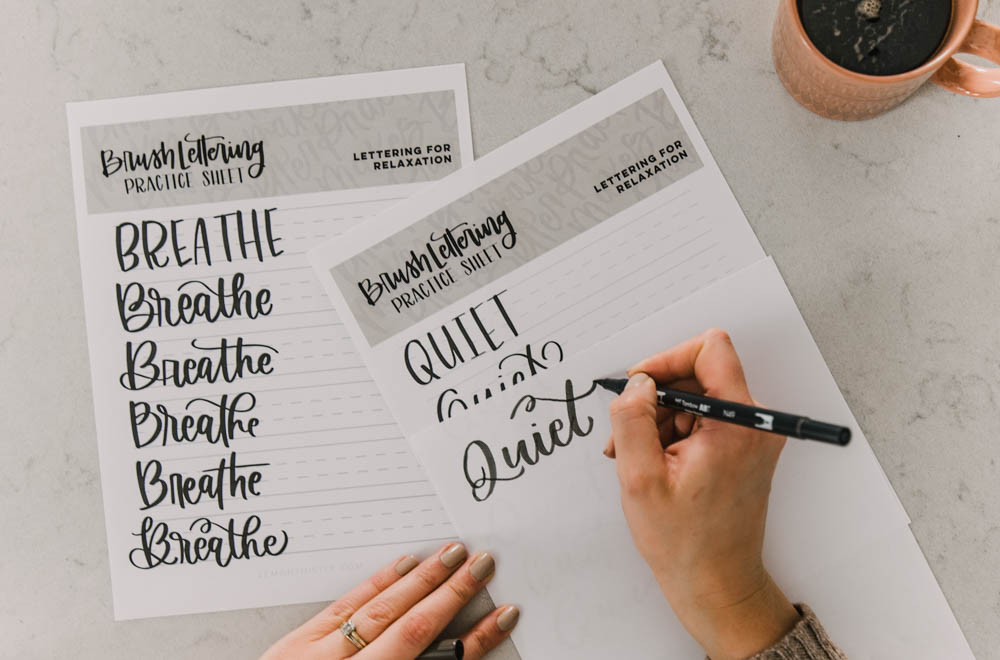 Brush Lettering
PRACTICE SHEET
LETTERING FOR
RELAXATION
BREATHE
Breathe
Breathe
Breathe
Breathe
Breathe
Brush Lettering
PRACTICE SHEET
LETTERING FOR
RELAXATION
QUIET
Quiet
Quiet
Tombow
N15